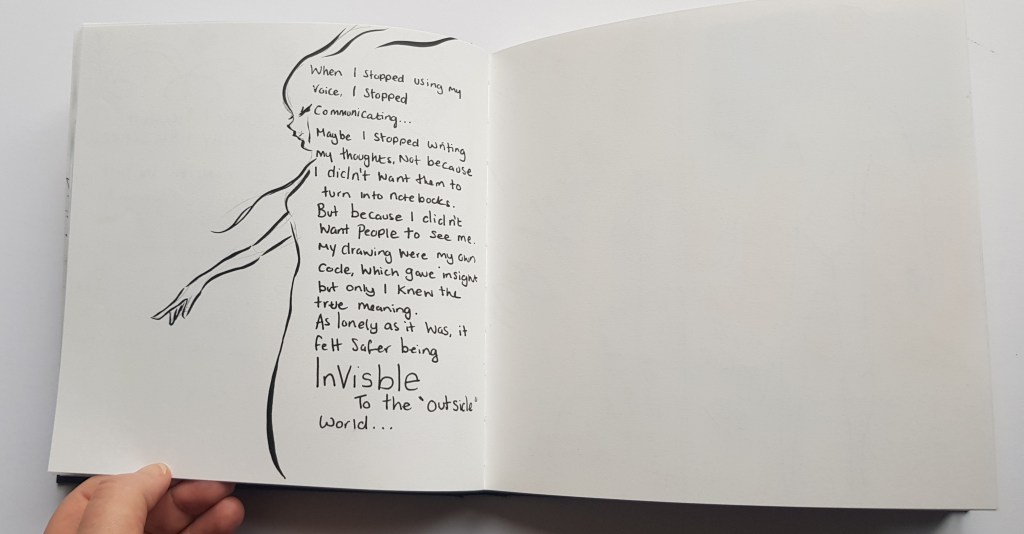 When I Stopped using my
Voice, I Stopped
Communicating...
Maybe I Stopped writing
my thoughts, Not because
I didn't want them to
turn into notebooks.
But because I didn't
want People to see me.
My drawing were my own
Code, which gave insight
but only I knew the
true meaning.
As lonely as it was, it
felt Safer being
InVisble
To the "outside"
World...